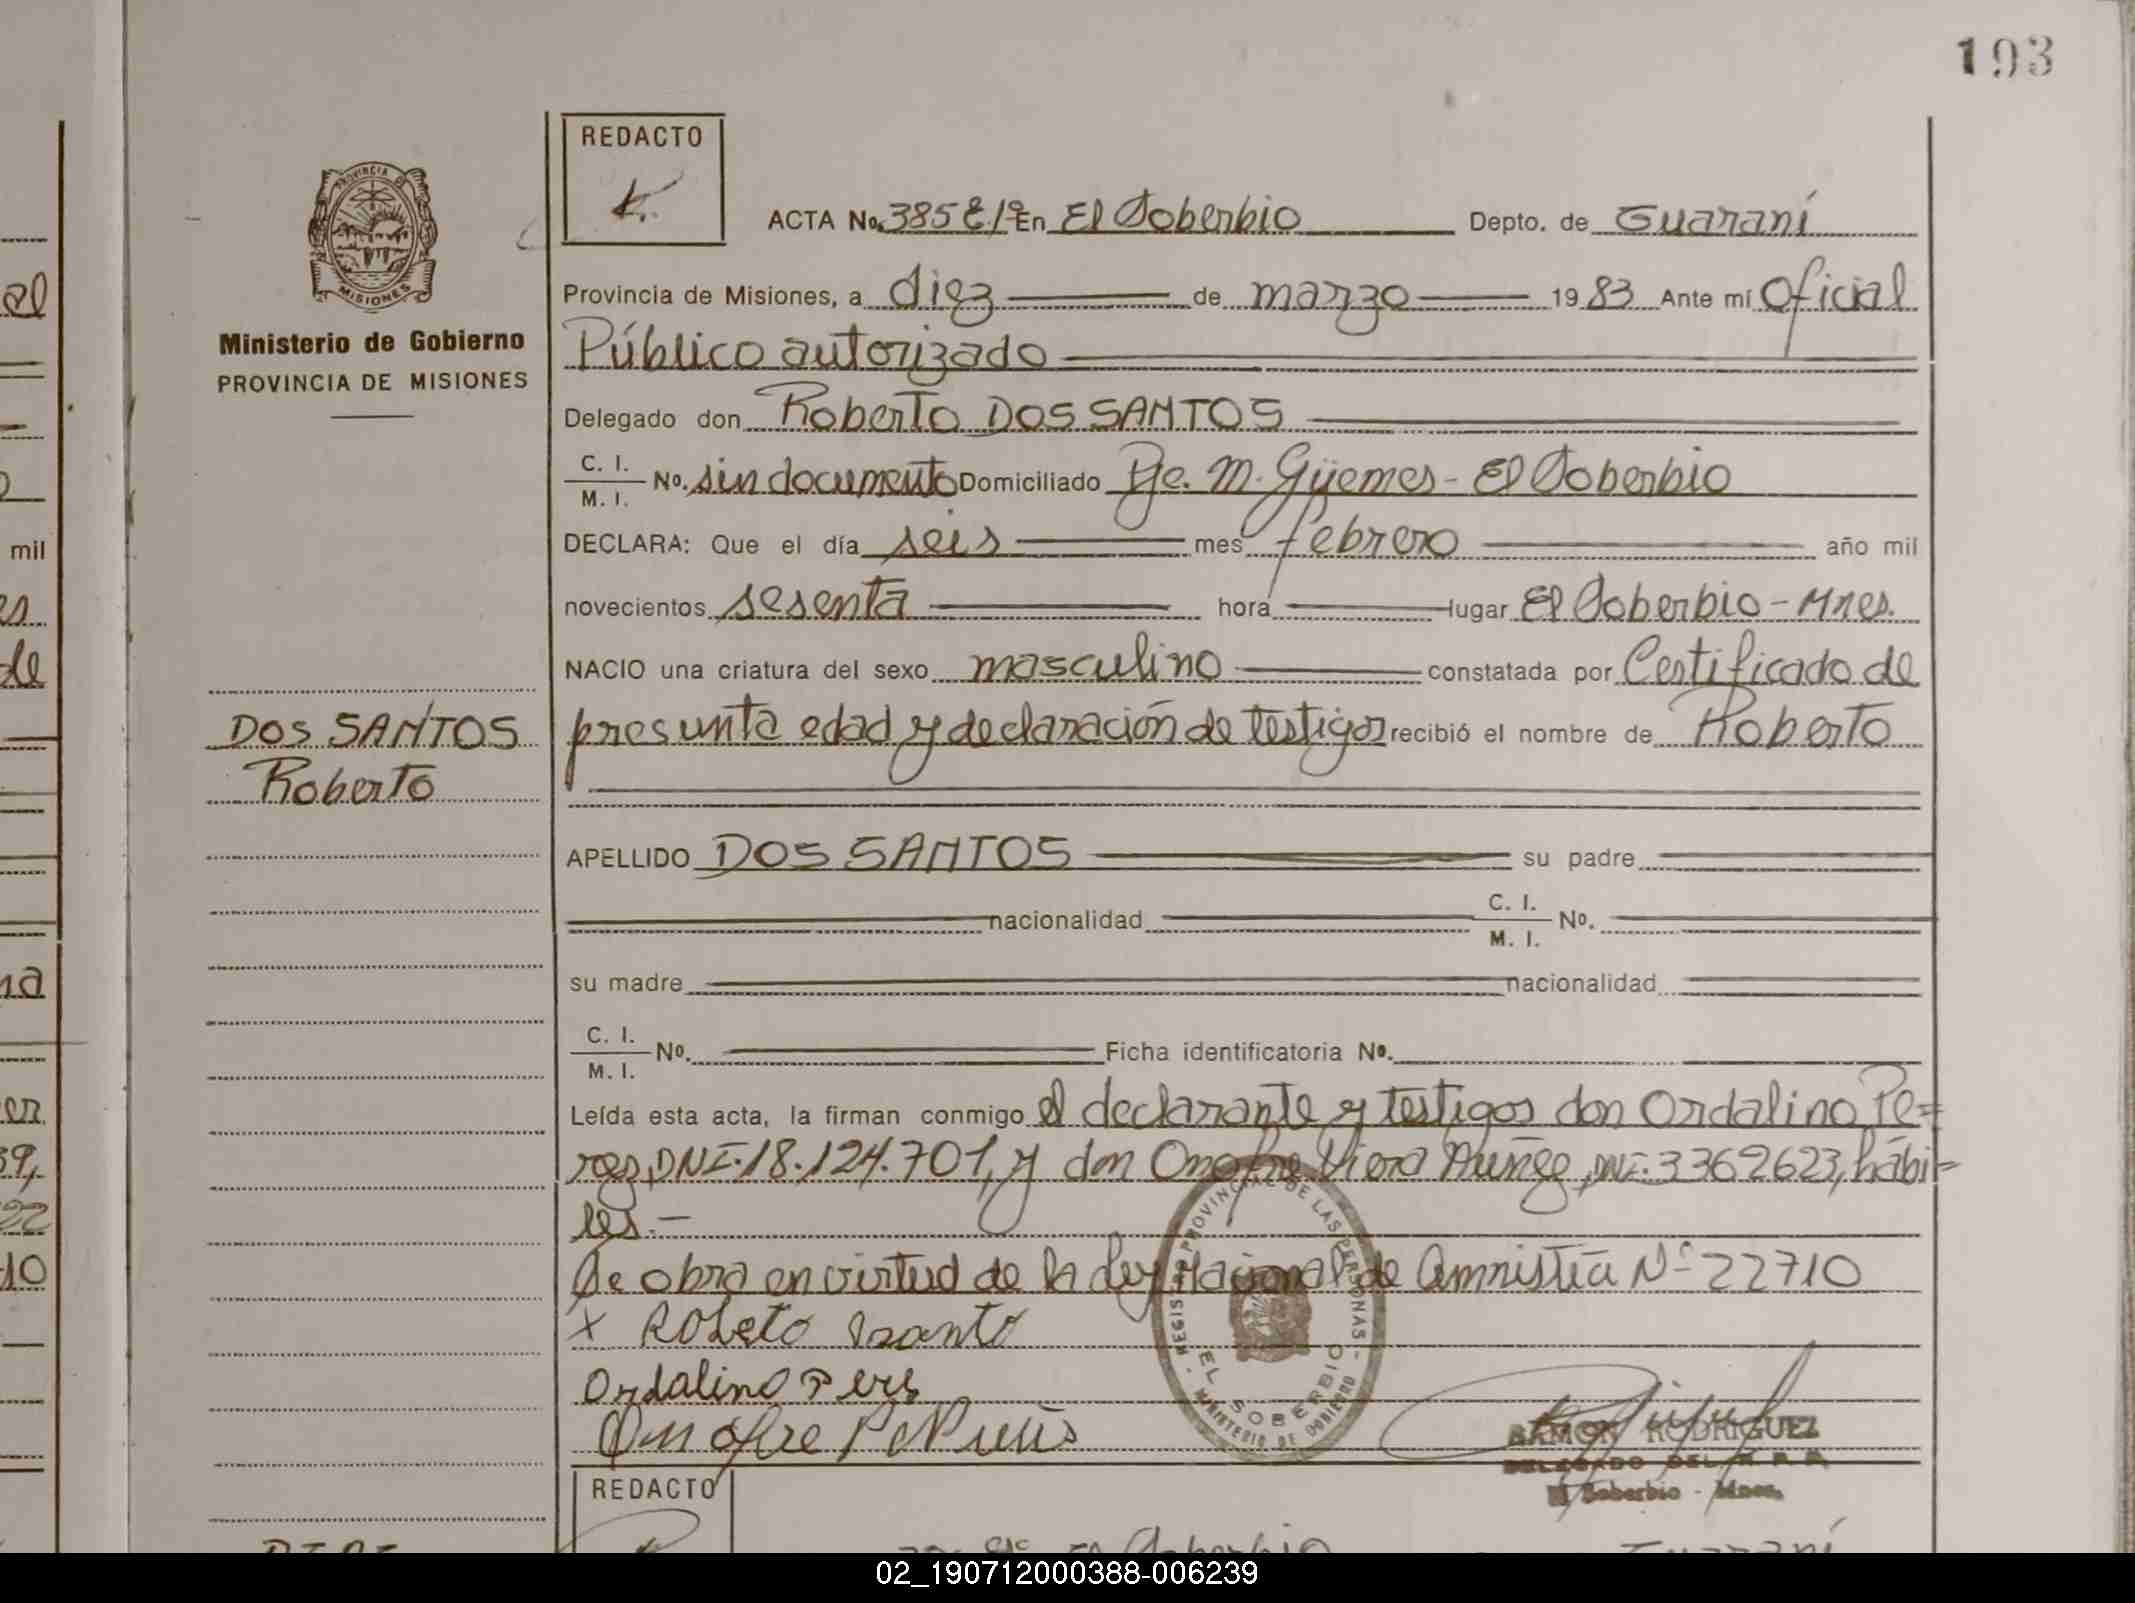 193
REDACTO
PROVINCIA DE
MISIONES
ACTA No. 385 En El Soberbio Depto. de Guaraní
Provincia de Misiones, a diez de marzo 1983 Ante mí Oficial
Ministerio de Gobierno
Público autorizado
PROVINCIA DE MISIONES
Delegado don Roberto DOS SANTOS
C. I.
M. I. No. sin documento Domiciliado Pje. M. Güemes - El Soberbio
DECLARA: Que el día seis mes febrero año mil
novecientos sesenta hora lugar El Soberbio - Mnes.
NACIO una criatura del sexo masculino constatada por Certificado de
DOS SANTOS
presunta edad y declaración de testigos recibió el nombre de Roberto
Roberto
APELLIDO DOS SANTOS su padre
nacionalidad C. I.
M. I. No.
su madre nacionalidad
C. I.
M. I. No. Ficha identificatoria No.
Leída esta acta, la firman conmigo el declarante y testigos don Ordalino Pe=
rez, DNI. 18.124.701, y don Onofre Viera Nuñez, DNI. 3362623, hábi-
les.-
Se obra en virtud de la Ley Nacional de Amnistía Nº 22710
x Robeto
Ordalino
Onofre
REGISTRO PROVINCIAL DE LAS PERSONAS - MINISTERIO DE GOBIERNO
EL SOBERBIO
RAMON RODRIGUEZ
DELEGADO DEL R. P. P.
El Soberbio - Mnes.
REDACTO
El Soberbio Guaraní
mil
de
22
10
02_190712000388-006239